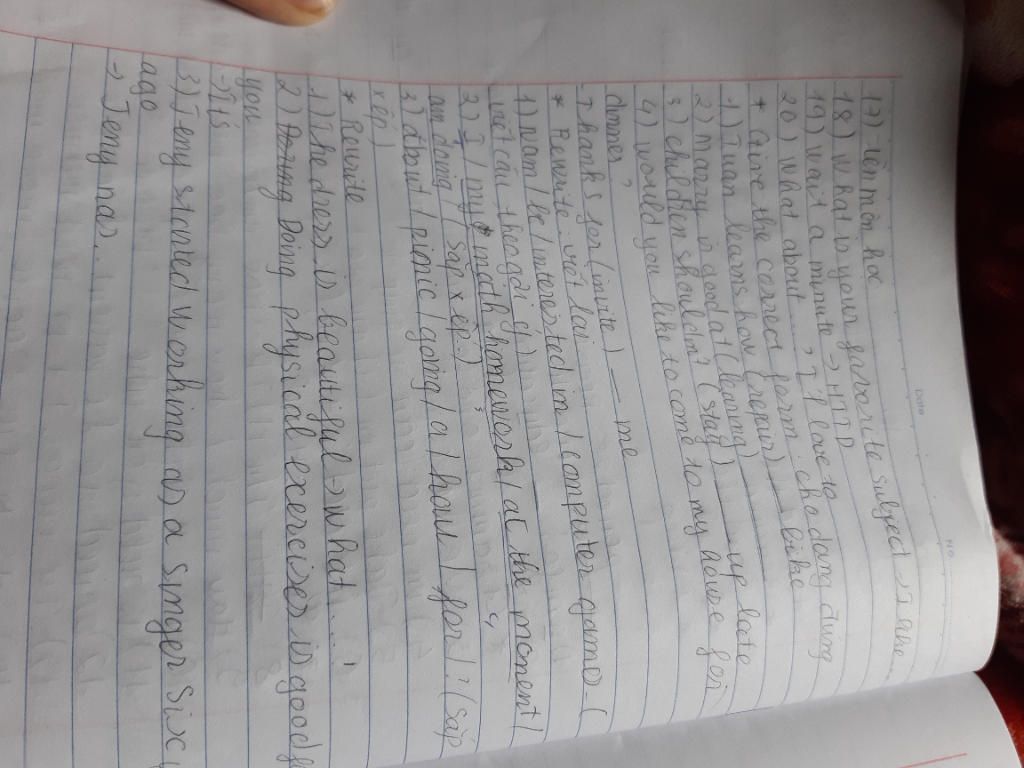 Date
No
17) Tên môn học
18) What is your favorite subject → I like
19) Wait a minute → HTD
20) What about ..., I'd love to
* Give the correct form: chia dạng đúng
1) Tuan learns how (repair) like
2) Marry is good at (learning)
3) Children shouldn't (stay) ___ up late
4) Would you like to come to my house for
dinner?
- Thanks for (invite) ___ me
* Rewrite: viết lại
1) Nam / be / interested in / computer games. (
viết câu theo gợi ý)
2) I / my / math homework / at the moment /
am doing / (sắp xếp.)
3) about / picnic / going / a / how / for /? (sắp
xếp)
* Rewrite
1) The dress is beautiful → what ....!
2) Doing physical exercises is good f
you
→ It is
3) Jeny started working as a singer six y
ago
→ Jeny has.